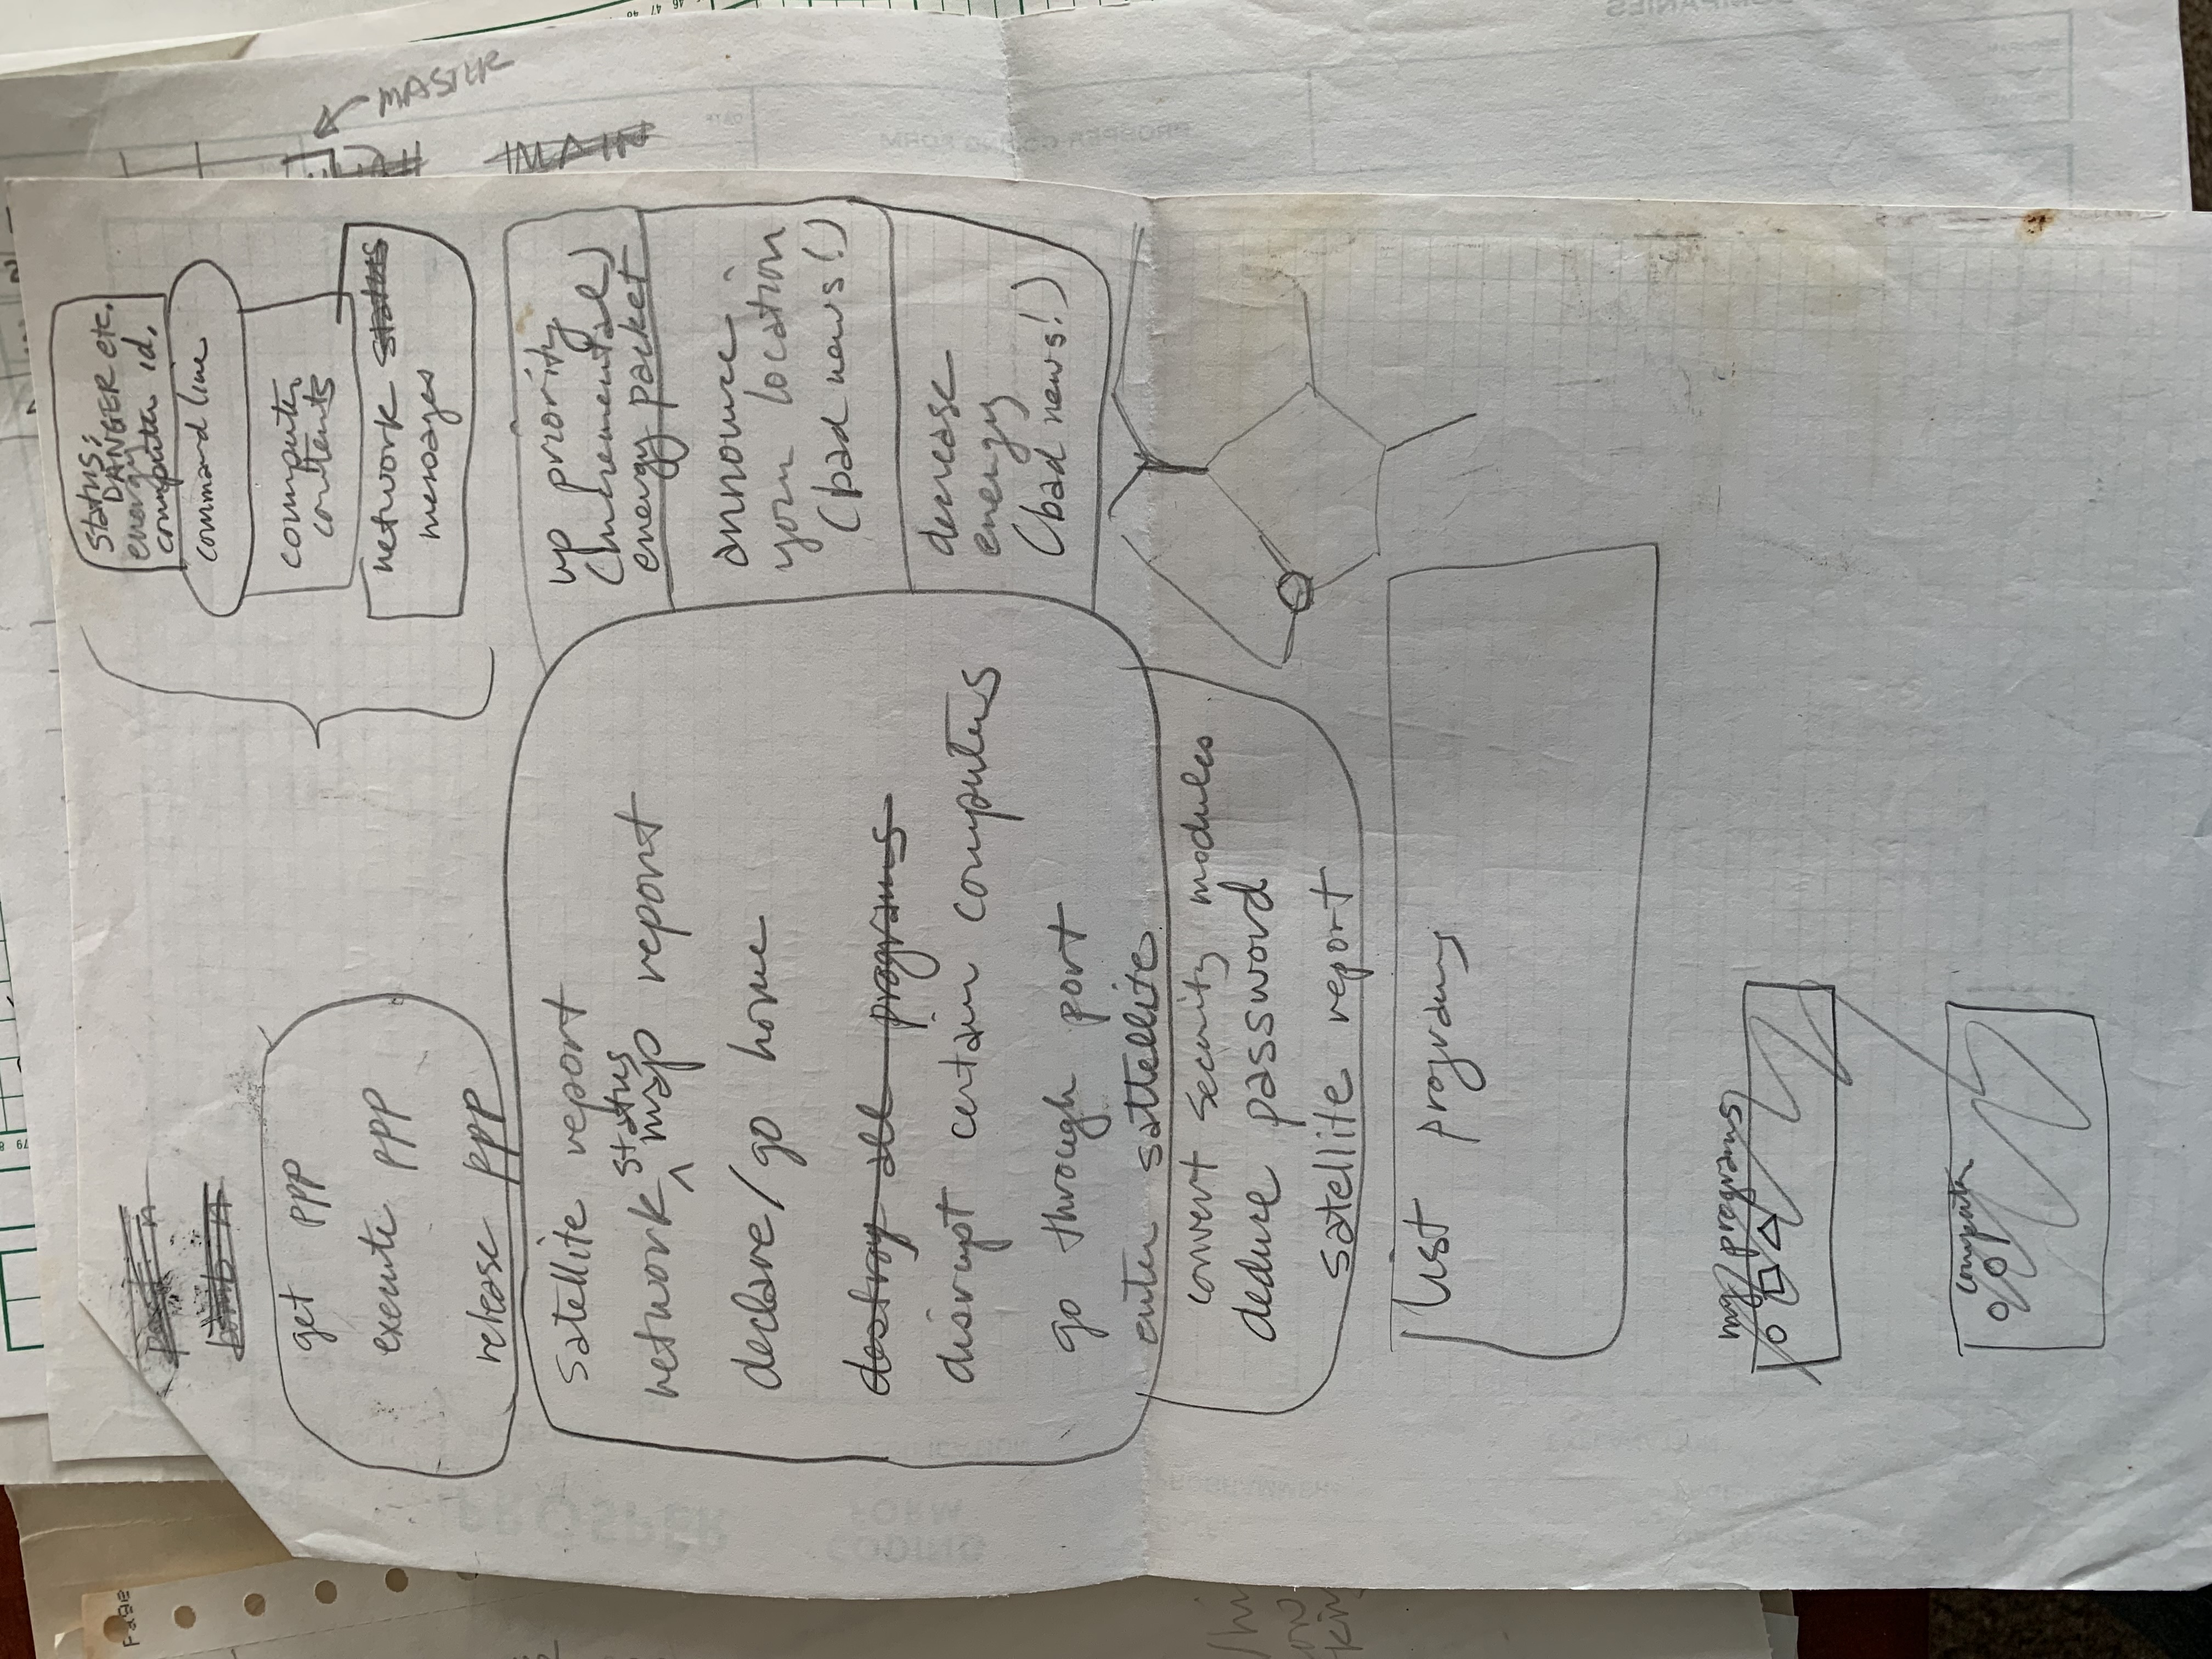 port n
bomb n
get ppp
execute ppp
release ppp
status:
DANGER etc.
energy
computer id.
command line
computer
contents
network status
messages
satellite report
network status map report
declare/go home
destroy all programs
disrupt certain computers
go through port
enter sattellite
convert security modules
deduce password
satellite report
up priority
(incremental)
energy packet
announce
your location
(bad news!)
decrease
energy
(bad news!)
list programs
my programs
computer
Page
MASSIVE